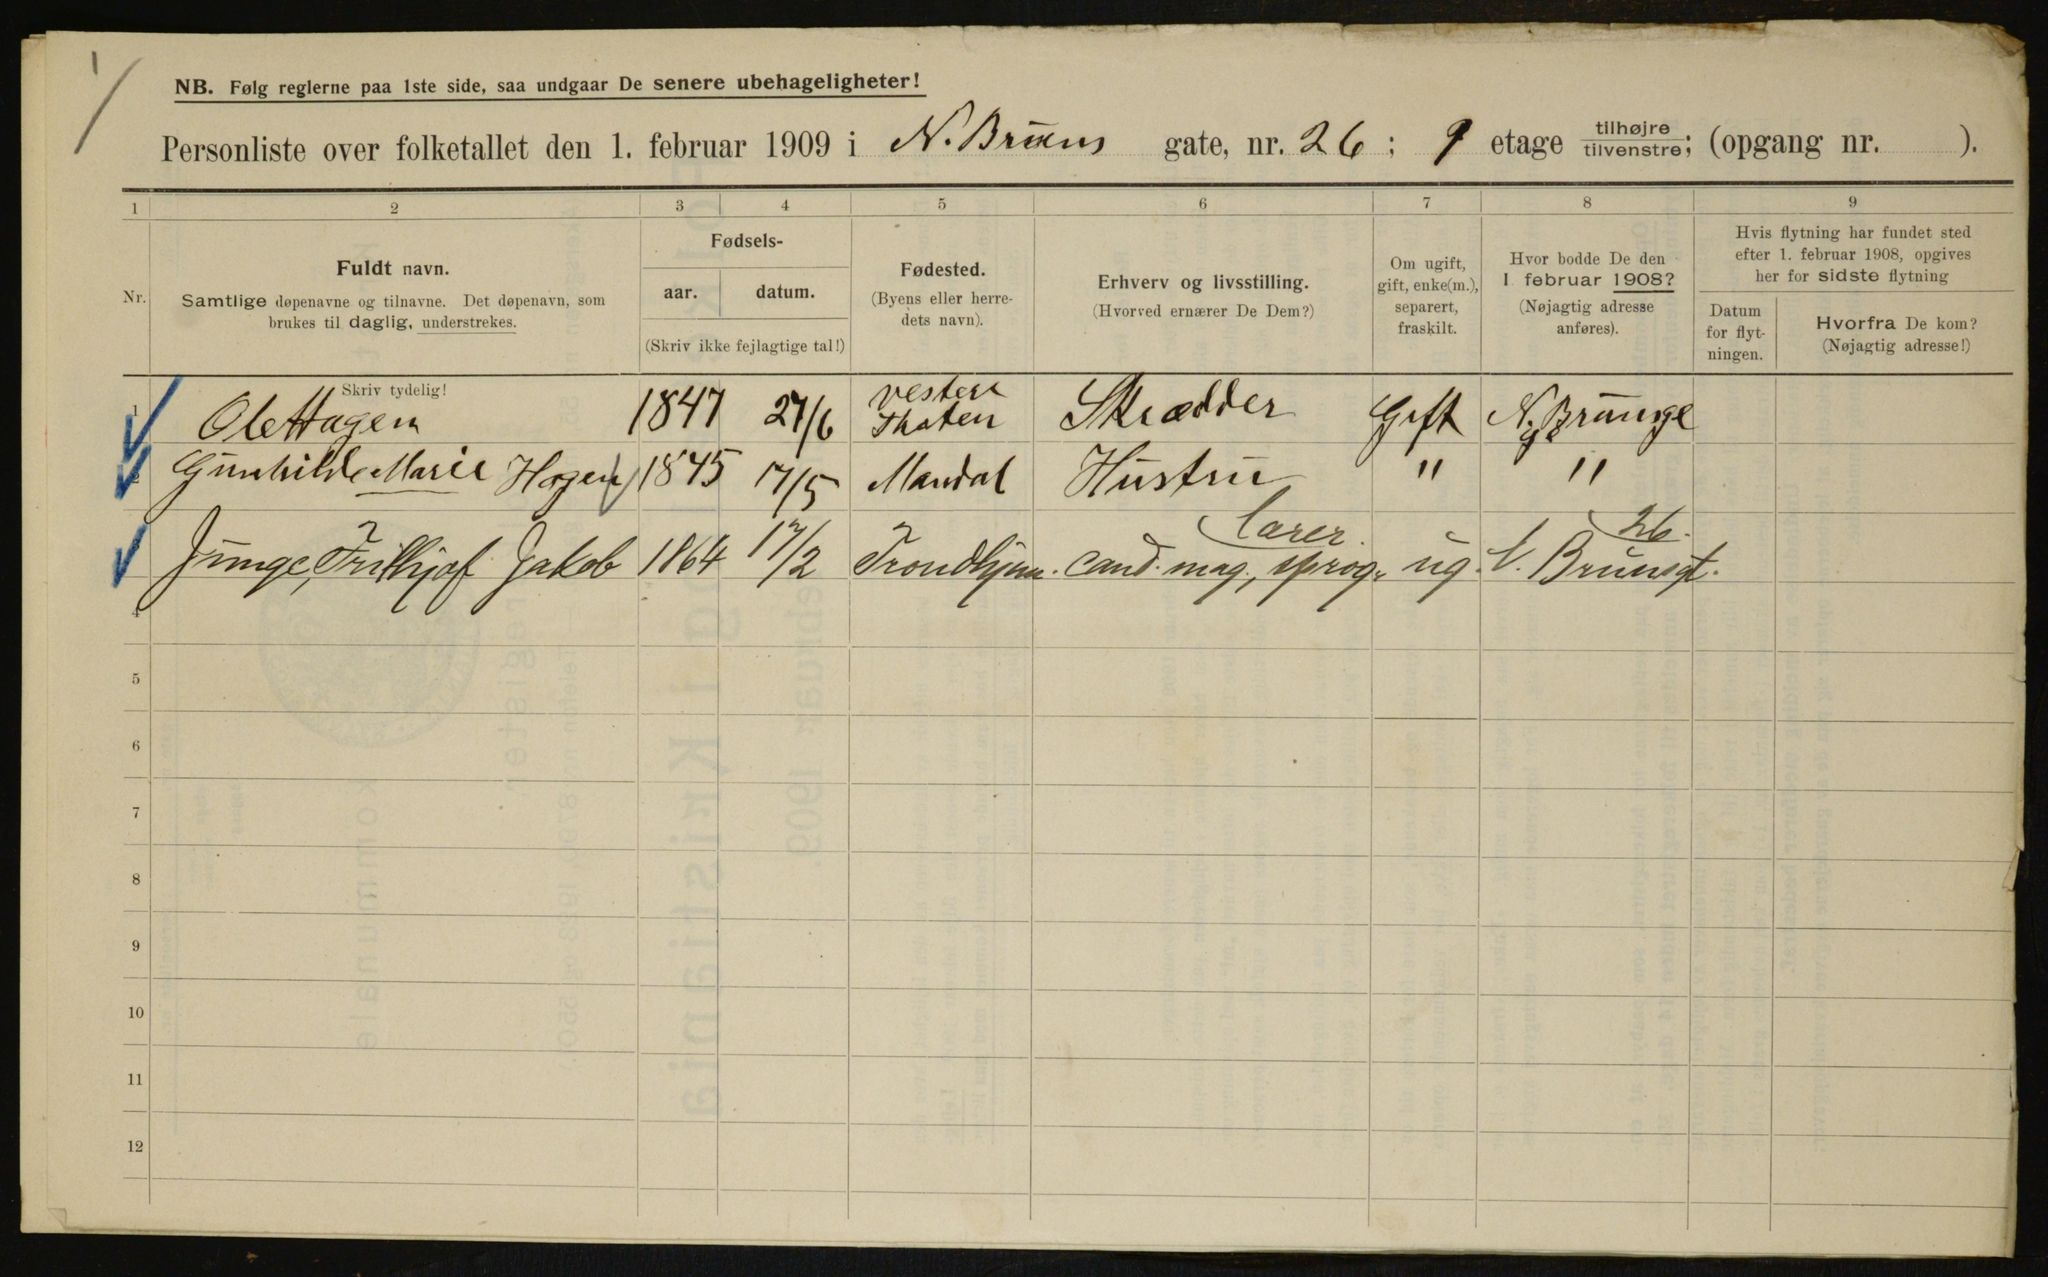 NB. Følg reglerne paa 1ste side, saa undgaar De senere ubehageligheter!
Personliste over folketallet den 1. februar 1909 i N. Bruns gate, nr. 26; 1 etage tilhøjre tilvenstre; (opgang nr. ).
1 2 3 4 5 6 7 8 9
Nr.
Fuldt navn.
Samtlige døpenavne og tilnavne. Det døpenavn, som
brukes til daglig, understrekes.
Fødsels-
aar. datum.
(Skriv ikke fejlagtige tal!)
Fødested.
(Byens eller herre-
dets navn).
Erhverv og livsstilling.
(Hvorved ernærer De Dem?)
Om ugift,
gift, enke(m.),
separert,
fraskilt.
Hvor bodde De den
1 februar 1908?
(Nøjagtig adresse
anføres).
Hvis flytning har fundet sted
efter 1. februar 1908, opgives
her for sidste flytning
Datum
for flyt-
ningen.
Hvorfra De kom?
(Nøjagtig adresse!)
Skriv tydelig!
1 Ole Hagen 1847 27/6 Vestere Thoten Skrædder Gift N. Brunsge
2 Gunhilde Marie Hagen 1845 17/5 Mandal Hustru " "
Junge, Frithjof Jakob 1864 17/2 Trondhjem. cand. mag., sprog- lærer. ug. N. Brunsgt. 26.
4
5
6
7
8
9
10
11
12